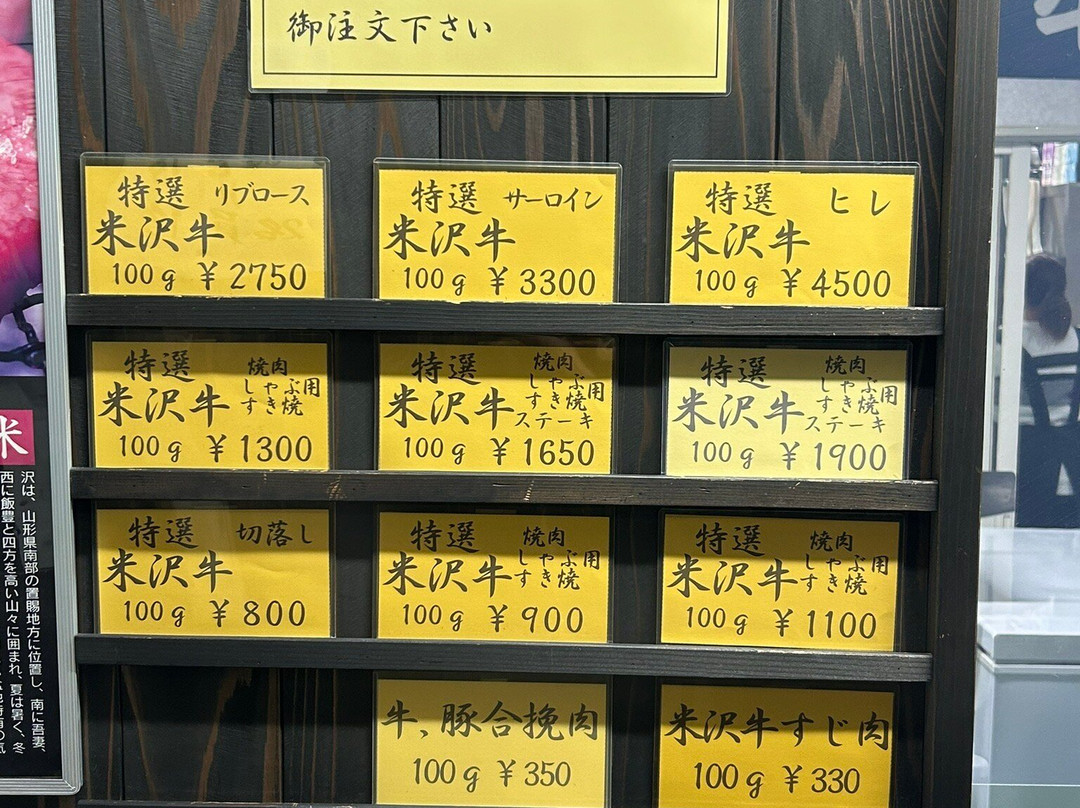 御注文下さい
特選 リブロース
米沢牛
100g ¥2750
特選 サーロイン
米沢牛
100g ¥3300
特選 ヒレ
米沢牛
100g ¥4500
特選 焼肉
しゃぶ用
米沢牛 すき焼
100g ¥1300
特選 焼肉
しゃぶ用
米沢牛 すき焼
ステーキ
100g ¥1650
特選 焼肉
しゃぶ用
米沢牛 すき焼
ステーキ
100g ¥1900
特選 切落し
米沢牛
100g ¥800
特選 焼肉
しゃぶ用
米沢牛 すき焼
100g ¥900
特選 焼肉
しゃぶ用
米沢牛 すき焼
100g ¥1100
牛,豚合挽肉
100g ¥350
米沢牛すじ肉
100g ¥330
米
沢は、山形県南部の置賜地方に位置し、南に吾妻、
西に飯豊と四方を高い山々に囲まれ、夏は暑く、冬